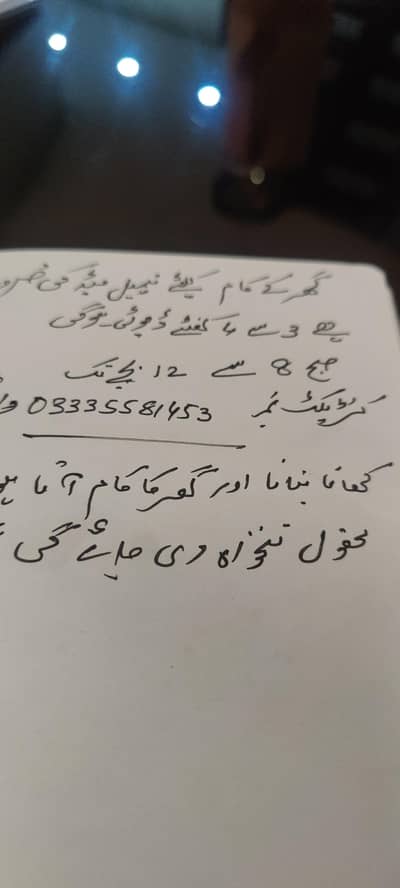 گھر کے کام کیلئے فیمیل میڈ کی ضرو
ہے 3 سے 4 گھنٹے ڈیوٹی ہوگی
صبح 8 سے 12 بجے تک
کنٹیکٹ نمبر 03335581453
کھانا بنانا اور گھر کا کام آتا ہو
معقول تنخواہ دی جائے گی